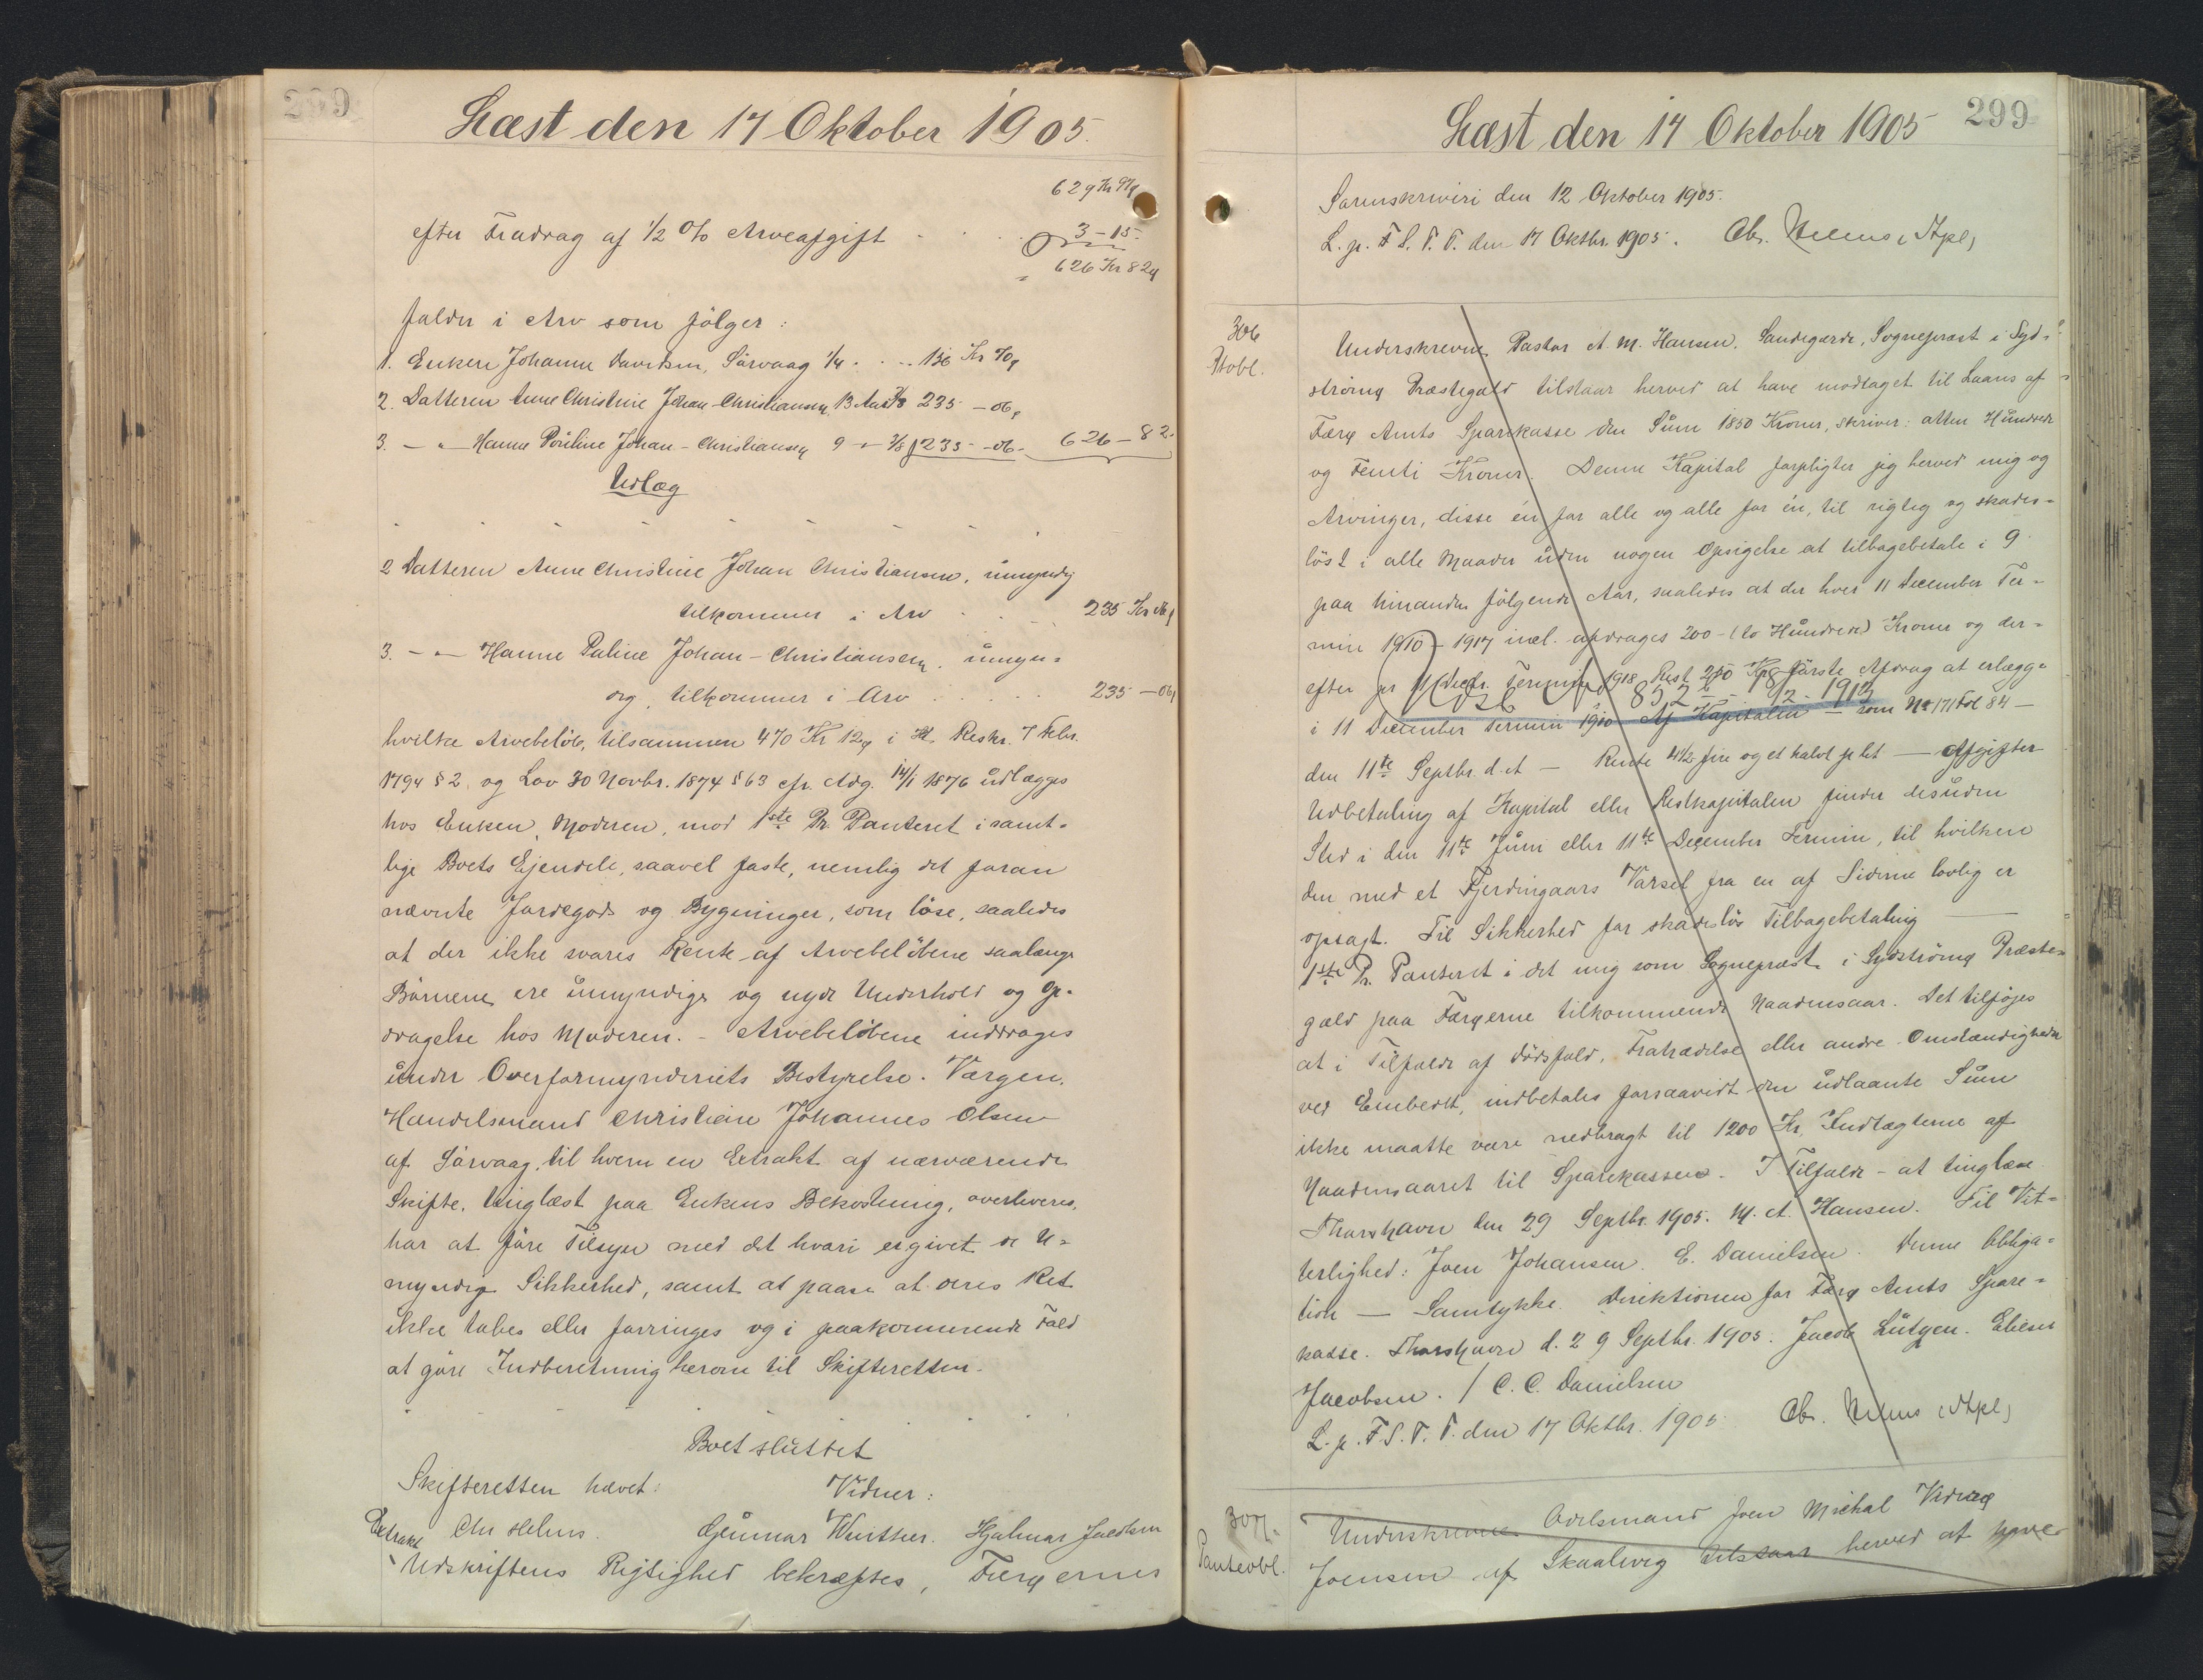 299
Læst den 17 Oktober 1905.
629 Kr 97ø
efter Fradrag af 1/2 % Arveafgift 3-15.
626 Kr 82ø
falder i Arv som følger:
1. Enken Johanne Davidsen, Sörvaag 1/4 156 Kr 70ø
2. Datteren Anne Christine Johan-Christiansen 13 Aar 3/8 235 - 06,
3. - " - Hanne Pouline Johan-Christiansen 9 - " 3/8 235 - 06 - 626 - 82.
Udlæg
2 Datteren Anne Christine Johan Christiansen, umyndig
tilkommer i Arv 235 Kr 06ø
3. - " - Hanne Paline Johan-Christiansen, umyn=
dig, tilkommer i Arv 235 - 06ø
hvilke Arvebeløb, tilsammen 470 Kr 12ø i Hl. Reskr. 7 Febr.
1794 § 2, og Lov 30 Novbr. 1874 § 63 cfr. Adg. 14/1 1876 udlægges
hos Enken, Moderen, mod 1ste Pr. Panteret i samt-
lige Boets Ejendele, saavel faste, nemlig det foran
nævnte Jordegods og Bygninger, som löse, saaledes
at der ikke svares Rente af Arvebelöbene saalænge
Börnene ere umyndige og nyde Underhold og Op-
dragelse hos Moderen. - Arvebelöbene inddrages
under Overformynderiets Bestyrelse. Værgen,
Handelsmand Christian Johannes Olsen
af Sörvaag, til hvem en Extrakt af nærværende
Skifte, tinglæst paa Enkens Bekostning, overleveres,
har at före Tilsyn med det hvori er givet de U=
myndige Sikkerhed, samt at paase at deres Ret
ikke tabes eller forringes og i paakommende Fald
at göre Indberetning herom til Skifteretten.
Boet sluttet
Skifteretten hævet: Vidner:
Chr Helms. Gunnar Winther. Hjalmar Jacobsen
Extrakt
Udskriftens Rigtighed bekræftes, Færøernes
Læst den 17 Oktober 1905
299
Sorenskriveri den 12 Oktober 1905.
L. p. F. S. T. T. den 17 Oktbr. 1905. Chr. Helms, Kpl,
306
Obl.
Underskrevne Pastor A. M. Hansen, Sandegærde, Sognepræst i Syd-
strömø Præstegæld tilstaar herved at have modtaget til Laans af
Færø Amts Sparekasse den Sum 1850 Kroner, skriver: atten Hundrede
og Femti Kroner. Denne Kapital forpligter jeg herved mig og
Arvinger, disse én for alle og alle for én, til rigtig og skades-
löst i alle Maader uden nogen Opsigelse at tilbagebetale i 9
paa hinanden følgende Aar, saaledes at der hver 11 December Ter-
min 1910 - 1917 incl. afdrages 200 - (to Hundrede) Kroner og der-
efter pr 11 Decbr. Termin 1918 Rest 250 Kr. Förste Afdrag at erlægge
i 11 December Termin 1910 Af Kapitalen - som No 171 Fol 84 -
den 11te Septbr. d. A - Rente 4 1/2 fire og et halvt pCt - Afgifter
Udbetaling af Kapital eller Restkapitalen finder desuden
Sted i den 11te Juni eller 11te December Termin, til hvilken
den med et Fjerdingaars Varsel fra en af Siderne lovlig er
opsagt. Til Sikkerhed for skadeslös Tilbagebetaling
1ste Pr. Panteret i det mig som Sognepræst i Sydströmø Præste=
gæld paa Færøerne tilkommende Naadensaar. Det tilføjes
at i Tilfælde af Dödsfald, Fratrædelse eller andre Omstændigheder
ved Embedet, indbetales forsaavidt den udlaante Sum
ikke maatte være nedbragt til 1200 Kr, Indtægterne af
Naadensaaret til Sparekassen. I Tilfælde - at tinglæse
Thorshavn den 29 Septbr. 1905. M. A. Hansen. Til Vit=
terlighed: Joen Johansen. E. Danielsen. Denne Obliga=
tion - Samtykke. Direktionen for Færø Amts Spare=
kasse. Thorshavn d. 29 Septbr. 1905. Jacob Lützen. Elieser
Jacobsen. / C. C. Danielsen
L. p. F. S. T. T. den 17 Oktbr. 1905. Chr. Helms, Kpl,
307.
Panteobl.
Underskrevne Odelsmand Joen Michal Vidrig
Joensen af Skaalevig tilstaar herved at have